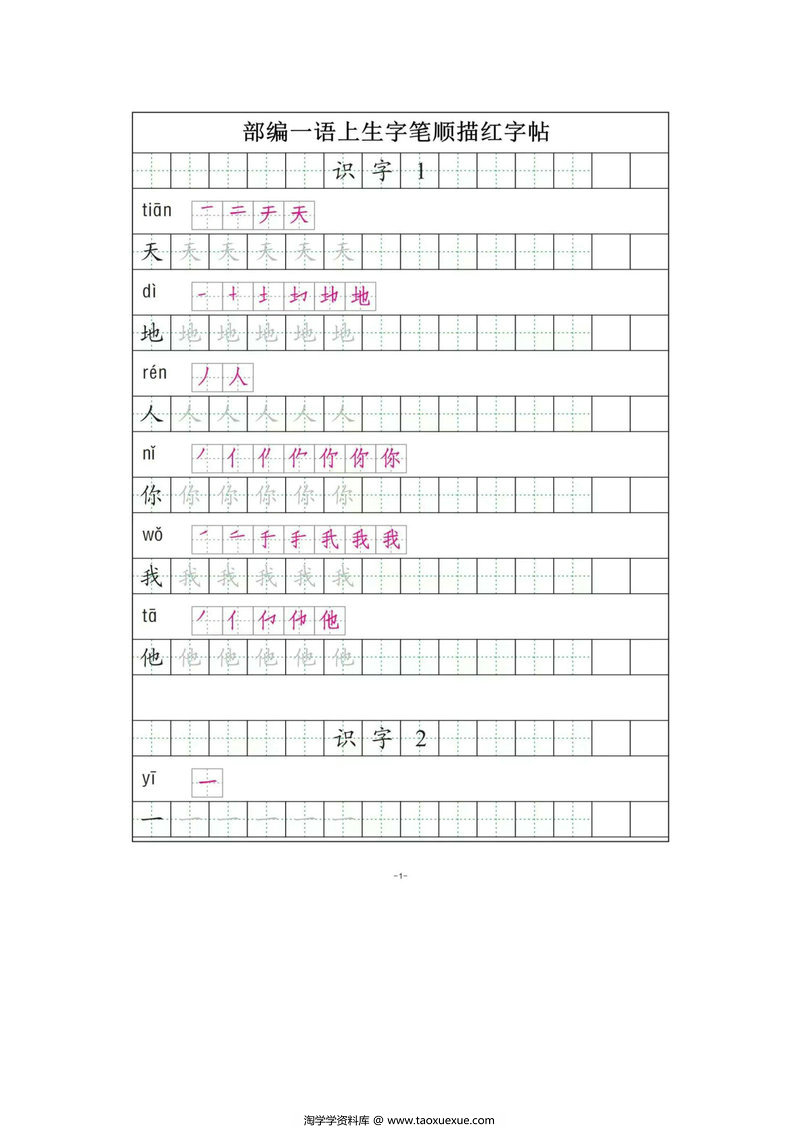 部编一语上生字笔顺描红字帖
识字1
tiān 一 二 チ 天
天天天天天天
dì
地地地地地地
rén 丿 人
人人人人人人
nǐ
你你你你你你
wǒ
我我我我我我
tā
他他他他他他
识字2
yī 一
一一一一一一
-1-
淘学学资料库 @ www.taoxuexue.com